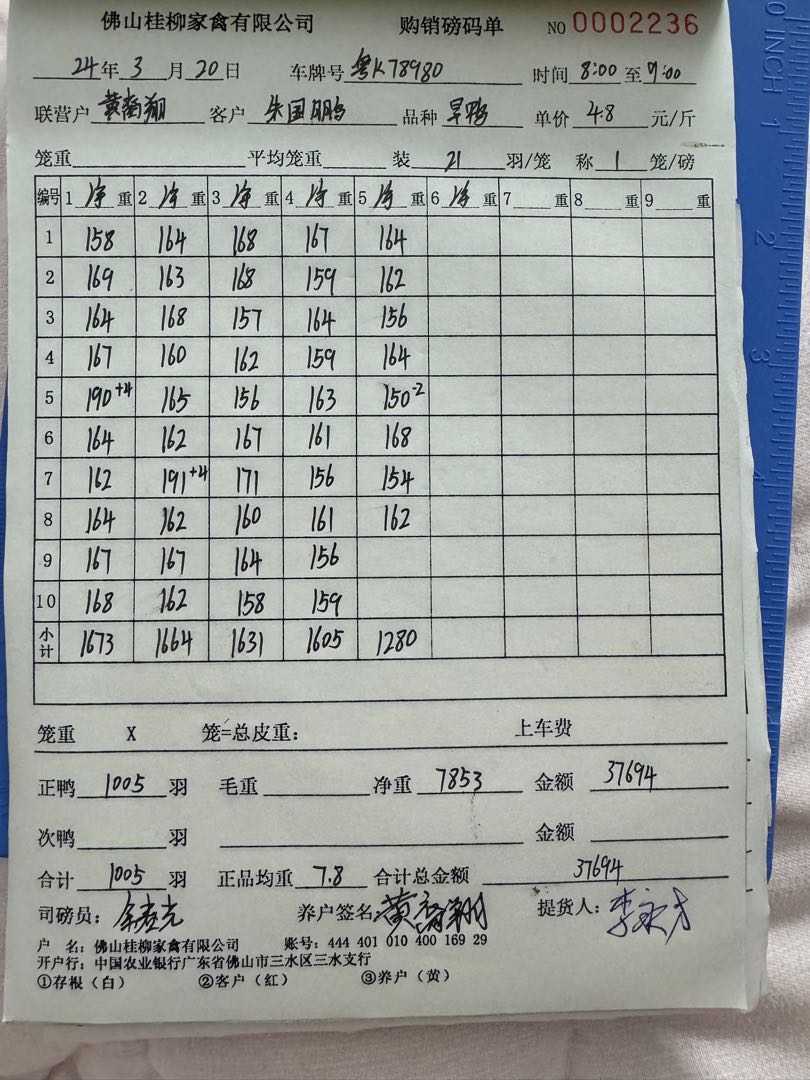 佛山桂柳家禽有限公司 购销磅码单 NO 0002236
24年 3 月 20 日 车牌号 粤K78980 时间 8:00 至 9:00
联营户 黄裔翔 客户 朱国鹏 品种 旱鸭 单价 4.8 元/斤
笼重 平均笼重 装 21 羽/笼 称 1 笼/磅
编号 1 净 重 2 净 重 3 净 重 4 净 重 5 净 重 6 净 重 7 重 8 重 9 重
1 158 164 168 167 164
2 169 163 168 159 162
3 164 168 157 164 156
4 167 160 162 159 164
5 190+4 165 156 163 150-2
6 164 162 167 161 168
7 162 191+4 171 156 154
8 164 162 160 161 162
9 167 167 164 156
10 168 162 158 159
小计 1673 1664 1631 1605 1280
笼重 X 笼=总皮重: 上车费
正鸭 1005 羽 毛重 净重 7853 金额 37694
次鸭 羽 金额
合计 1005 羽 正品均重 7.8 合计总金额 37694
司磅员: 养户签名: 黄裔翔 提货人:
户 名: 佛山桂柳家禽有限公司 账号: 444 401 010 400 169 29
开户行: 中国农业银行广东省佛山市三水区三水支行
①存根（白） ②客户（红） ③养户（黄）
0 INCH 1
2
3
4